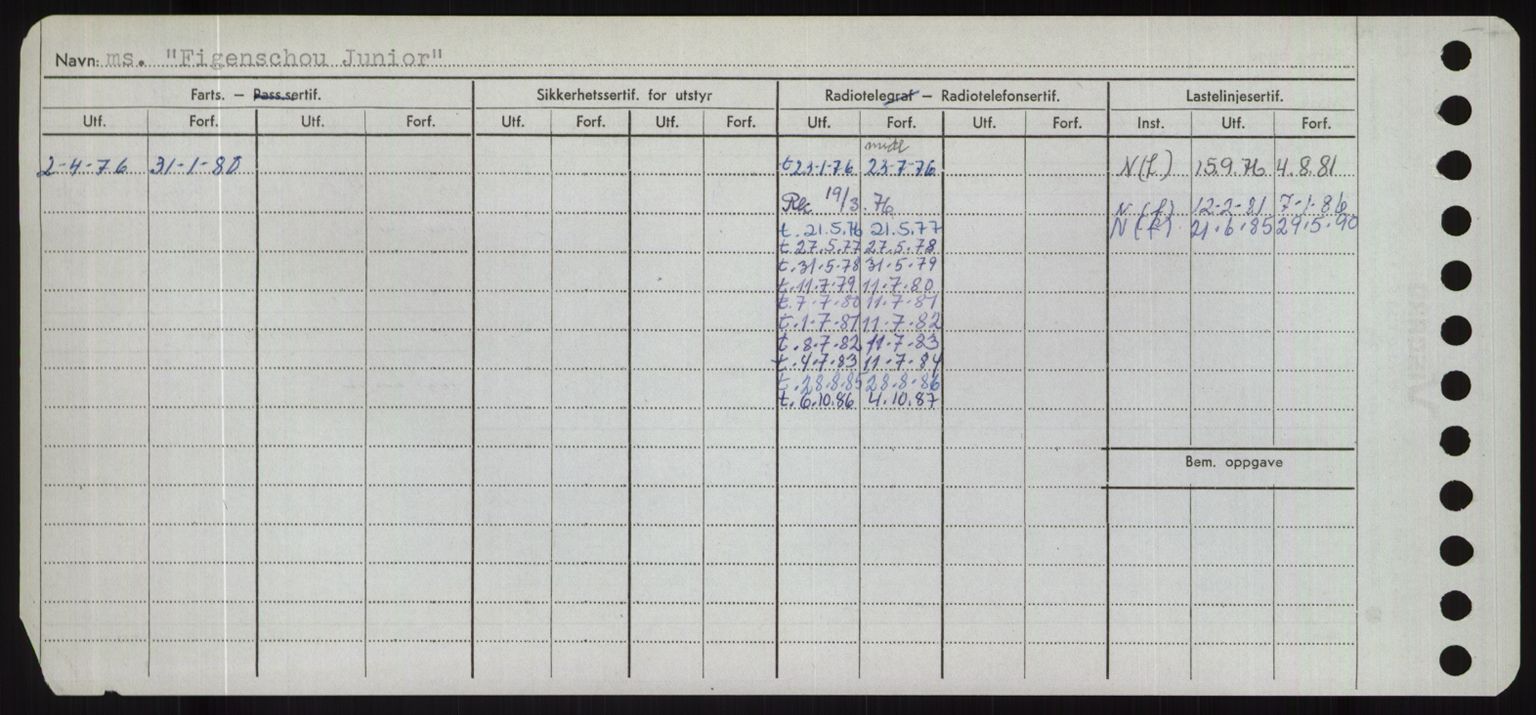 Navn: ms. "Figenschou Junior"
Farts. — Pass.sertif. Sikkerhetssertif. for utstyr Radiotelegraf — Radiotelefonsertif. Lastelinjesertif.
Utf. Forf. Utf. Forf. Utf. Forf. Utf. Forf. Utf. Forf. Utf. Forf. Inst. Utf. Forf.
midl
2-4-76 31-1-80 t 23-1-76 23-7-76 N(L) 15.9.76 4.8.81
19/3.76 N(L) 12-2-81 7-1-86
t. 21.5.76 21.5.77 N(L). 21.6.85 29.5.90
t. 27.5.77 27.5.78
t. 31.5.78 31.5.79
t. 11.7.79 11.7.80
t. 7.7.80 11.7.81
t. 1.7.81 11.7.82
t. 8.7.82 11.7.83
t. 4.7.83 11.7.84
t. 28.8.85 28.8.86
t. 6.10.86 4.10.87
Bem. oppgave